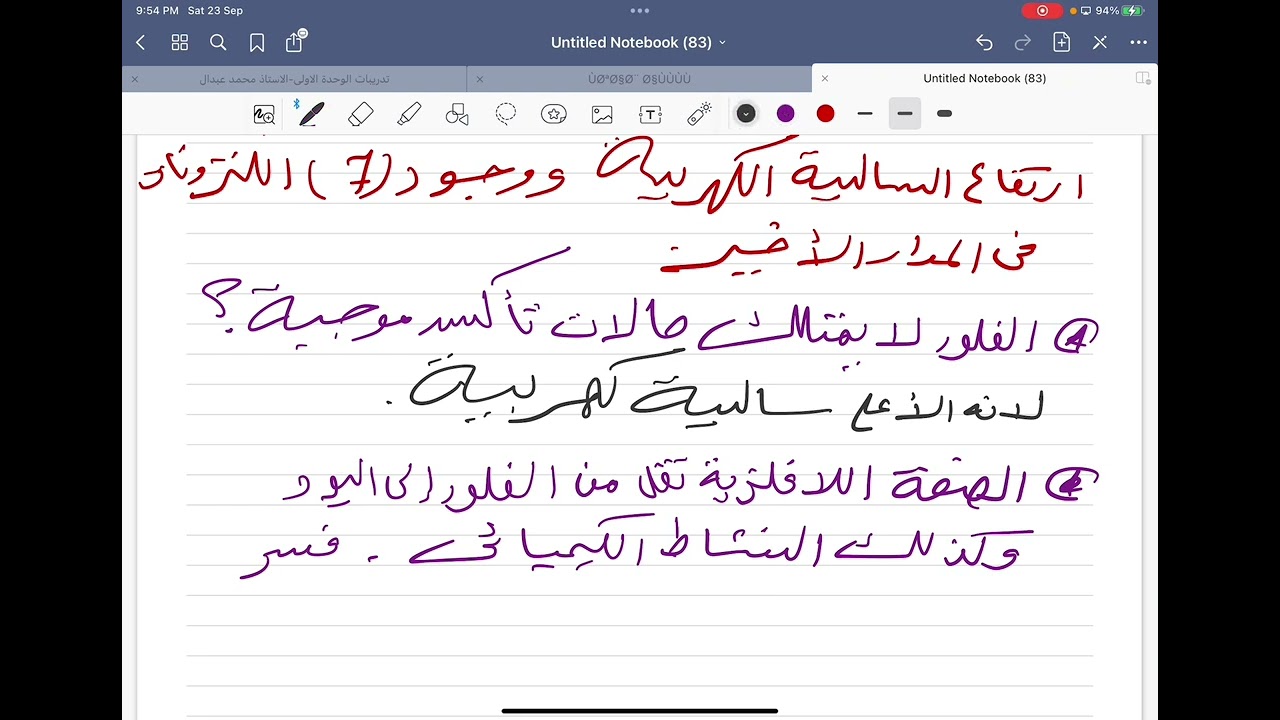 9:54 PM Sat 23 Sep
94%
Untitled Notebook (83)
تدريبات الوحدة الاولى-الاستاذ محمد عبدال
Untitled Notebook (83)
ارتفاع السالبية الكهربية ووجود (7) الكترونات
في المدار الأخير
1 الفلور لا يمتلك حالات تأكسد موجبة؟
لانه الأعلى سالبية كهربية.
2 الصفة اللافلزية تقل من الفلور الى اليود
وكذلك النشاط الكيميائي. فسر